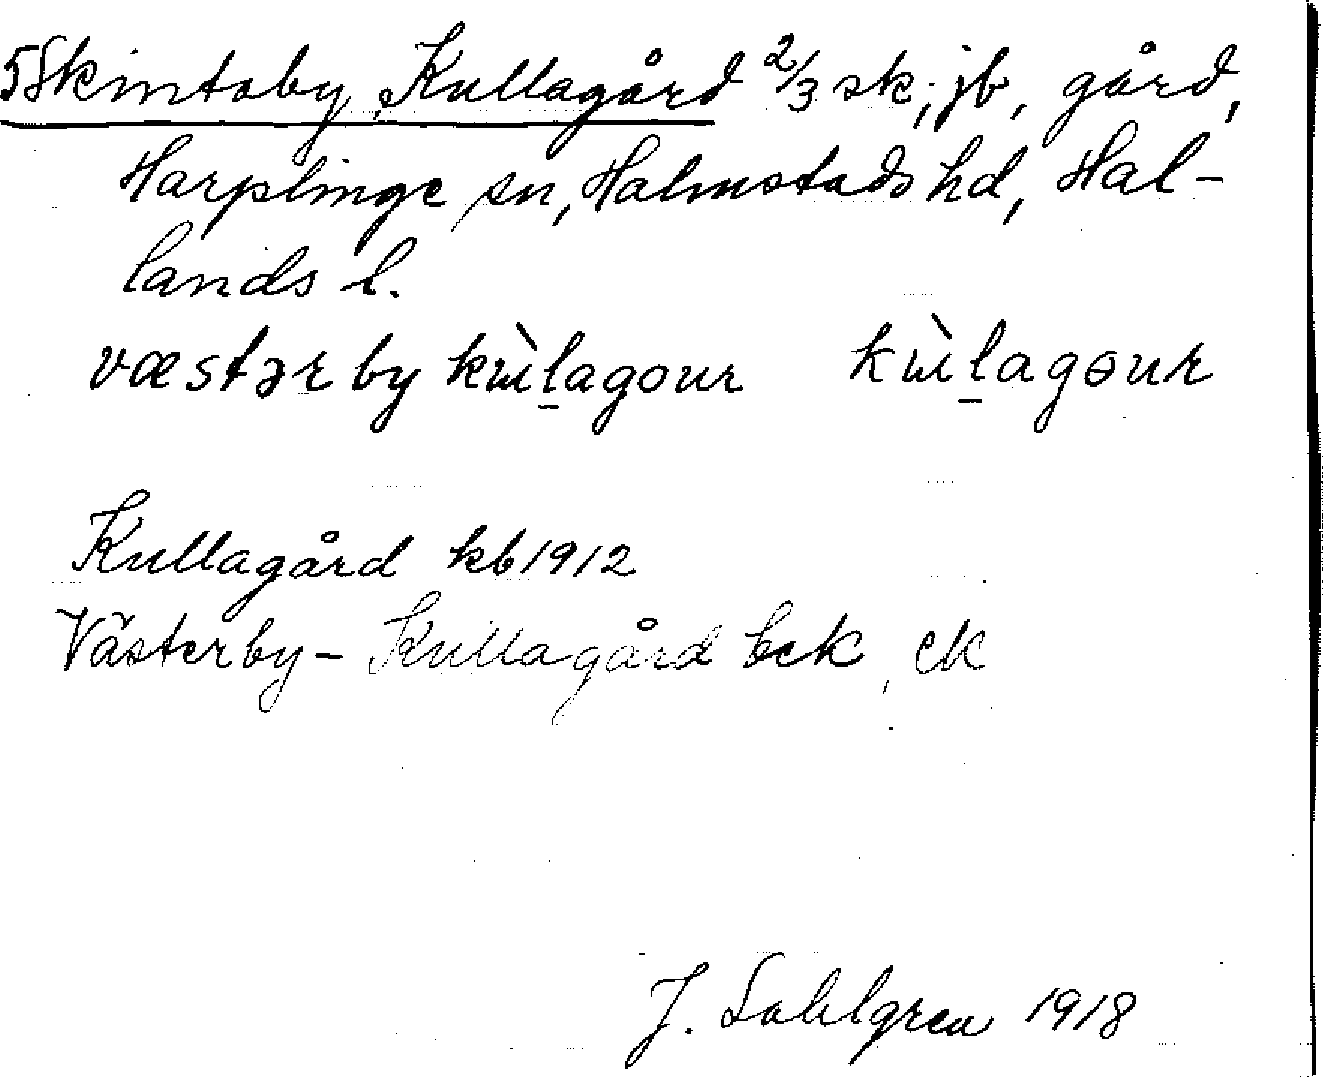 5 Skintaby, Kullagård 2/3 sk; jb, gård,
Harplinge sn, Halmstads hd, Hal-
lands l.
væstər by kɯ̀lagour kɯ̀lagour
Kullagård kb 1912
Västerby - Kullagård bck, ck
J. Sahlgren 1918